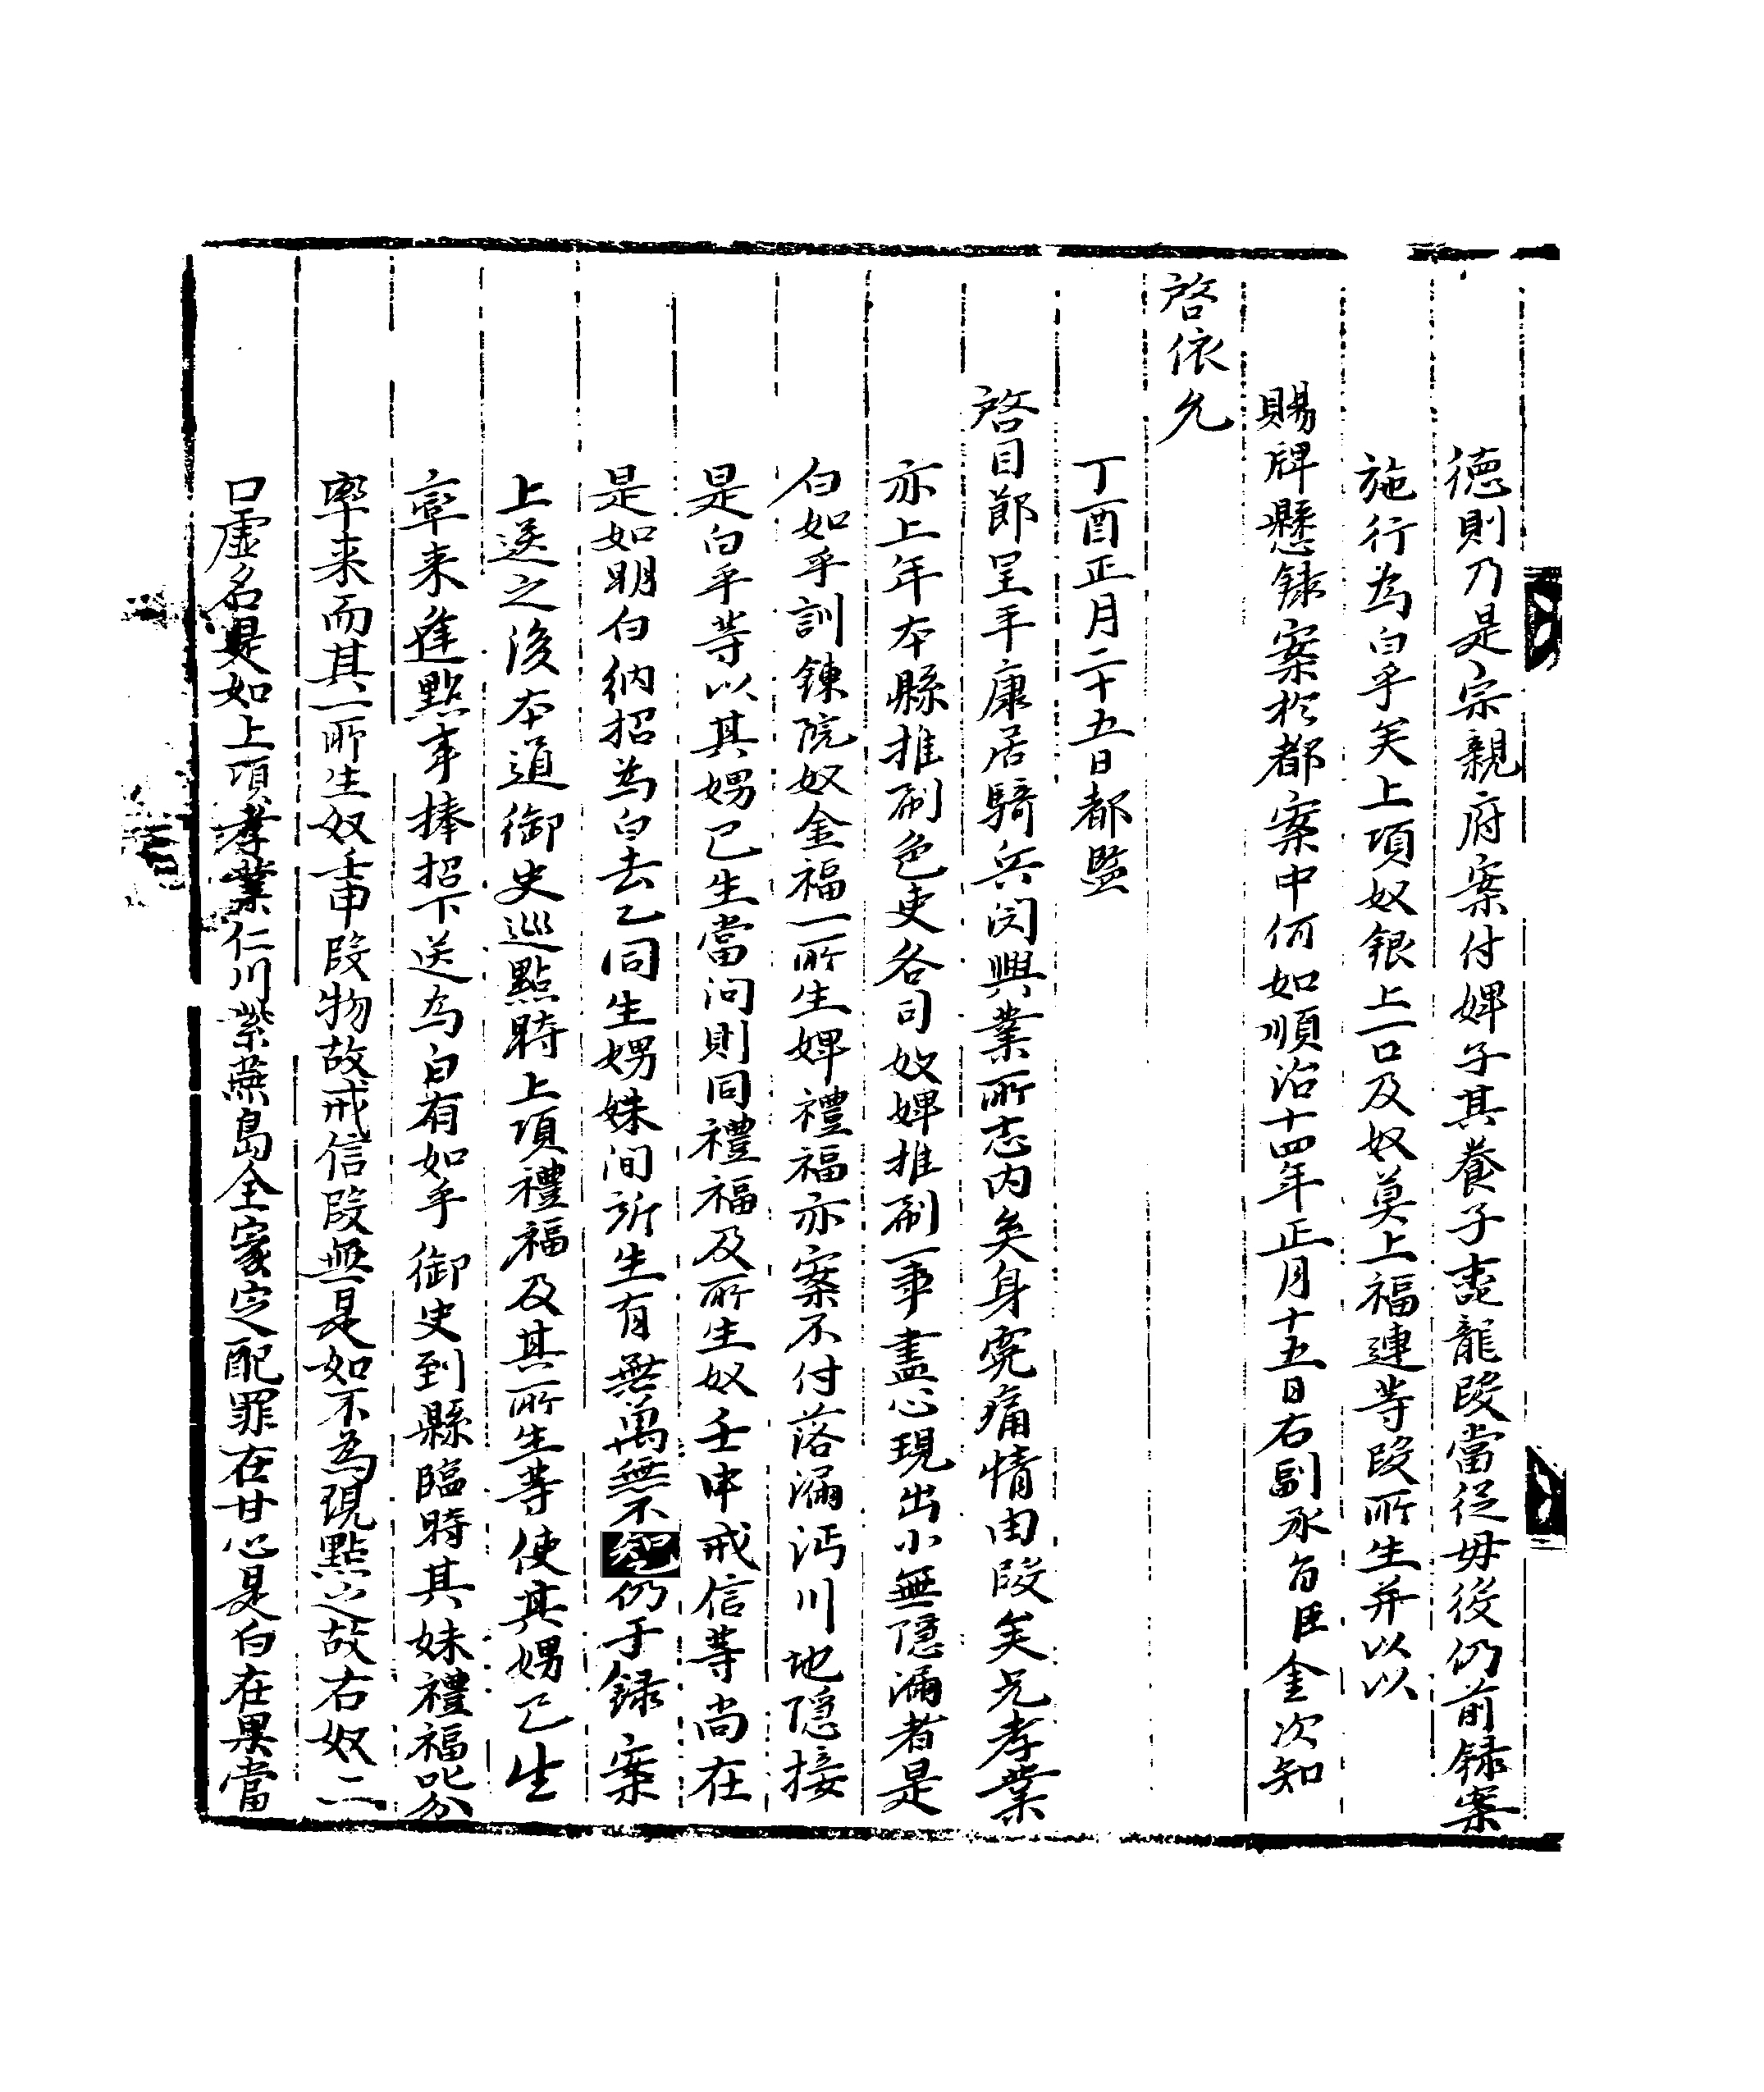 德則乃是宗親府案付婢子其養子壴龍段當從毋後仍前録案
施行為白乎矣上項奴銀上一口及奴莫上福連等段所生并以以
賜牌懸録案於都案中何如順治十四年正月十五日右副承旨臣金次知
啓依允
丁酉正月二十五日都監
啓目節呈平康居騎兵閔興業所志内矣身寃痛情由段矣兄孝業
亦上年本縣推刷色吏各司奴婢推刷一事盡心現出小無隱漏者是
白如乎訓鍊院奴金福一所生婢禮福亦案不付落漏沔川地隱接
是白乎等以其娚己生當問則同禮福及所生奴壬申戒信等尚在
是如明白納招為白去乙同生娚妹間所生有無萬無不仍于録案
上送之後本道御史巡點時上項禮福及其所生等使其娚己生
率来進點事捧招下送為白有如乎御史到縣臨時其妹禮福叱分
率来而其二所生奴壬申段物故戒信段無是如不為現點之故右奴二
口虛名是如上項孝業仁川紫燕島全家定配罪在甘心是白在果當